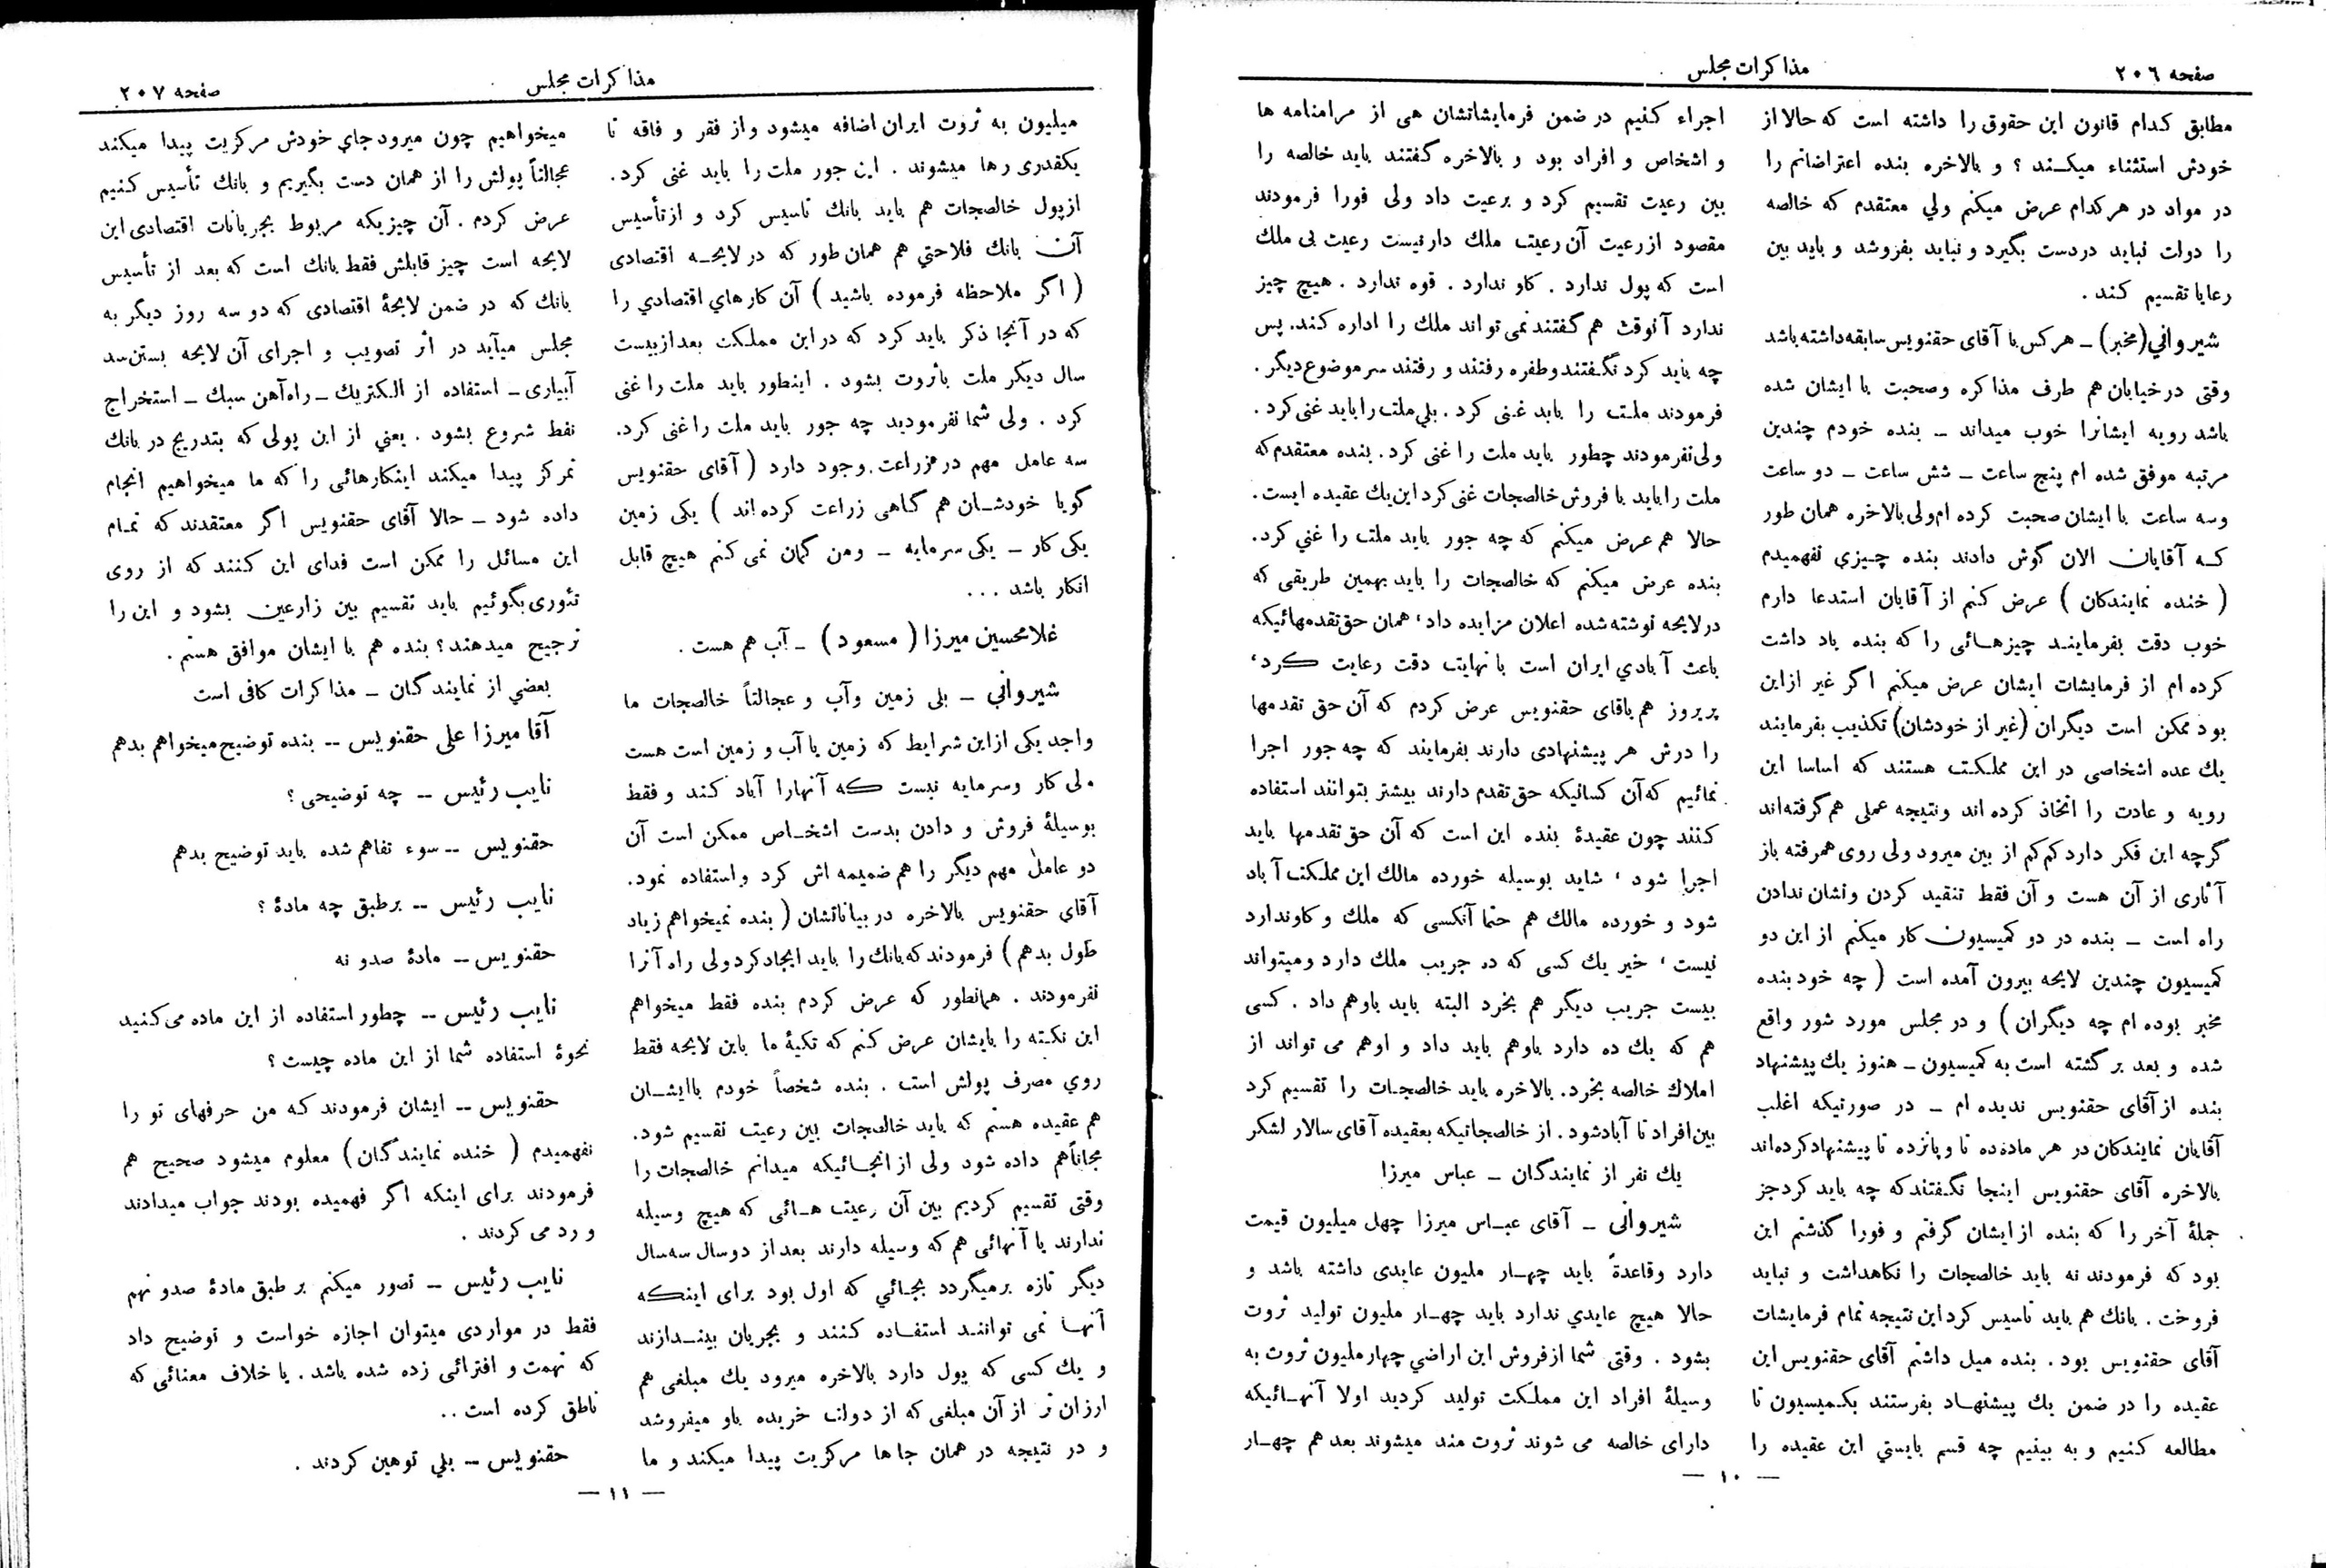 صفحه ۲۰۶
مذاکرات مجلس
مطابق کدام قانون این حقوق را داشته است که حالا از
خودش استثناء میکـند ؟ و بالاخره بنده اعتراضاتم را
در مواد در هر کدام عرض میکنم ولي معتقدم که خالصه
را دولت نباید در دست بگیرد و نباید بفروشد و باید بین
رعایا تقسیم کند .
شیروانی(مخبر) ـ هر کس با آقای حقنویس سابقه داشته باشد
وقتی در خیابان هم طرف مذاکره وصحبت با ایشان شده
باشد رویه ایشانرا خوب میداند ـ بنده خودم چندین
مرتبه موفق شده ام پنج ساعت ـ شش ساعت ـ دو ساعت
وسه ساعت با ایشان صحبت کرده ام ولی بالاخره همان طور
کـه آقایان الان گوش دادند بنده چـیزي نفهمیدم
( خنده نمایندکان ) عرض کنم از آقایان استدعا دارم
خوب دقت بفرمایند چیزهـائی را که بنده یاد داشت
کرده ام از فرمایشات ایشان عرض میکنم اگر غیر از این
بود ممکن است دیگران (غیر از خودشان) تکذیب بفرمایند
یك عده اشخاصی در این مملکت هستند که اساسا این
رویه و عادت را اتخاذ کرده اند ونتیجه عملی هم گرفته‌اند
گرچه این فکر دارد کم کم از بین میرود ولی روی همرفته باز
آثاری از آن هست و آن فقط تنقید کردن ونشان ندادن
راه است ـ بنده در دو کمیسیون کار میکنم از این دو
کمیسیون چندین لایحه بیرون آمده است ( چه خود بنده
مخبر بوده ام چه دیگران ) و در مجلس مورد شور واقع
شده و بعد بر گشته است به کمیسیون ـ هنوز یك پیشنهاد
بنده از آقای حقنویس ندیده ام ـ در صورتیکه اغلب
آقایان نمایندکان در هر ماده ده تا و پانزده تا پیشنهاد کرده‌اند
بالاخره آقای حقنویس اینجا نگـفتند که چه باید کرد جز
جملهٔ آخر را که بنده از ایشان گرفتم و فورا گذشتم این
بود که فرمودند نه باید خالصجات را نکاهداشت و نباید
فروخت . بانك هم باید تاسیس کرد این نتیجه تمام فرمایشات
آقای حقنویس بود . بنده میل داشتم آقای حقنویس این
عقیده را در ضمن یك پیشنهـاد بفرستند بکـمیسیون تا
مطالعه کنیم و به بینیم چه قسم بایستي این عقیده را
اجراء کـنیم در ضمن فرمایشاتشان هی از مرامنامه ها
و اشخاص و افراد بود و بالاخره گفتند باید خالصه را
بین رعیت تقسیم کرد و برعیت داد ولی فورا فرمودند
مقصود از رعیت آن رعیت ملك دار نیست رعیت بی ملك
است که پول ندارد . کاو ندارد . قوه ندارد . هیچ چیز
ندارد آنوقت هم گفتند نمی تواند ملك را اداره کند. پس
چه باید کرد نگـفتند وطفره رفتند و رفتند سر موضوع دیگر .
فرمودند ملت را باید غنی کرد . بلي ملت را باید غنی کرد .
ولی نفرمودند چطور باید ملت را غنی کرد . بنده معتقدم که
ملت را باید با فروش خالصجات غنی کرد این یك عقیده ایست .
حالا هم عرض میکنم که چه جور باید ملت را غني کرد .
بنده عرض میکنم که خالصجات را باید بهمین طریقی که
در لایحه نوشته شده اعلان مزایده داد ، همان حق تقدمهائیکه
باعث آبادي ایران است با نهایت دقت رعایت کرد ،
پریروز هم باقای حقنویس عرض کردم که آن حق تقدمها
را درش هر پیشنهادی دارند بفرمایند که چه جور اجرا
نمائیم که آن کسانیکه حق تقدم دارند بیشتر بتوانند استفاده
کنند چون عقیدهٔ بنده این است که آن حق تقدمها باید
اجرا شود ، شاید بوسیله خورده مالك این مملکت آباد
شود و خورده مالك هم حتما آنکسی که ملك و کاوندارد
نیست ، خیر یك کسی که ده جریب ملك دارد ومیتواند
بیست جریب دیگر هم بخرد البته باید باوهم داد . کسی
هم که یك ده دارد باوهم باید داد و اوهم می تواند از
املاك خالصه بخرد. بالاخره باید خالصجـات را تقسیم کرد
بین افراد تا آباد شود . از خالصجاتیکه بعقیده آقای سالار لشکر
یك نفر از نمایندگان ـ عباس میرزا
شیروانی ـ آقای عبـاس میرزا چهل میلیون قیمت
دارد وقاعدةً باید چهـار ملیون عایدی داشته باشد و
حالا هیچ عایدي ندارد باید چهـار ملیون تولید ثروت
بشود . وقتی شما از فروش این اراضي چهار ملیون ثروت به
وسیلهٔ افراد این مملـکت تولید کردید اولا آنهـائیکه
دارای خالصه می شوند ثروت مند میشوند بعد هم چهـار
— ۱۰ —
مذاکرات مجلس
صفحه ۲۰۷
میلیون به ثروت ایران اضافه میشود واز فقر و فاقه تا
یکقدری رها میشوند . این جور ملت را باید غنی کرد.
از پول خالصجات هم باید بانك تاسیس کرد و از تأسیس
آن بانك فلاحتي هم همان طور که در لایحـه اقتصادی
( اگر ملاحظه فرموده باشید ) آن کارهاي اقتصادي را
که در آنجا ذکر باید کرد که در این مملـکت بعد از بیست
سال دیگر ملت باثروت بشود . اینطور باید ملت را غنی
کرد . ولی شما نفرمودید چه جور باید ملت را غنی کرد.
سه عامل مهم در مزراعت وجود دارد ( آقای حقنویس
گویا خودشـان هم گاهی زراعت کرده‌اند ) یکی زمین
یکی کار ـ یکی سرمایه ـ ومن گمان نمی کنم هیچ قابل
انکار باشد ...
غلامحسین میرزا ( مسعود ) ـ آب هم هست .
شیروانی ـ بلی زمین وآب و عجالتاً خالصجات ما
واجد یکی از این شرایط که زمین یا آب و زمین است هست
ولی کار وسرمایه نیست که آنهارا آباد کند و فقط
بوسیلهٔ فروش و دادن بدست اشخـاص ممکن است آن
دو عامل مهم دیگر را هم ضمیمه اش کرد واستفاده نمود.
آقاي حقنویس بالاخره در بیاناتشان ( بنده نمیخواهم زیاد
طول بدهم ) فرمودند که بانك را باید ایجاد کرد ولی راه آنرا
نفرمودند . همانطور که عرض کردم بنده فقط میخواهم
این نکـته را بایشان عرض کنم که تکیهٔ ما باین لایحه فقط
روي مصرف پولش است . بنده شخصاً خودم باایشـان
هم عقیده هستم که باید خالصجات بین رعیت تقسیم شود.
مجاناًهم داده شود ولی از انجـائیکه میدانم خالصجات را
وقتی تقسیم کردیم بین آن رعیت هـائی که هیچ وسیله
ندارند یا آنهائی هم که وسیله دارند بعد از دوسال سه سال
دیگر تازه برمیگردد بجـائي که اول بود برای اینکه
آنهـا نمی تواننـد استفـاده کنند و بجریان بینـدازند
و یك کسی که پول دارد بالاخره میرود یك مبلغی هم
ارزان تر از آن مبلغی که از دولت خریده باو میفروشد
و در نتیجه در همان جاها مرکزیت پیدا میکند و ما
میخواهیم چون میرود جاي خودش مرکزیت پیدا میکند
عجالتاً پولش را از همان دست بگیریم و بانك تأسیس کـنیم
عرض کردم . آن چیزیکه مربوط بجریانات اقتصادی این
لایحه است چیز قابلش فقط بانك است که بعد از تأسیس
بانك که در ضمن لایحهٔ اقتصادی که دو سه روز دیگر به
مجلس میآید در اثر تصویب و اجرای آن لایحه بستن سد
آبیاری ـ استفاده از الکتریك ـ راه‌آهن سبك ـ استخراج
نفط شروع بشود . یعني از این پولی که بتدریج در بانك
تمرکز پیدا میکند اینکارهائی را که ما میخواهیم انجام
داده شود ـ حالا آقای حقنویس اگر معتقدند که تمـام
این مسائل را ممکن است فدای این کـنند که از روی
تئوری بگوئیم باید تقسیم بین زارعین بشود و این را
ترجیح میدهند ؟ بنده هم با ایشان موافق هستم .
بعضي از نمایندگان ـ مذاکرات کافی است
آقا میرزا علی حقنویس -- بنده توضیح میخواهم بدهم
نایب رئیس -- چه توضیحی ؟
حقنویس -- سوء تفاهم شده باید توضیح بدهم
نایب رئیس -- برطبق چه مادهٔ ؟
حقنویس -- مادهٔ صدو نه
نایب رئیس -- چطور استفاده از این ماده می کـنید
نحوهٔ استفاده شما از این ماده چیست ؟
حقنویس -- ایشان فرمودند که من حرفهای تو را
نفهمیدم ( خنده نمایندگان ) معلوم میشود صحیح هم
فرمودند برای اینکه اگر فهمیده بودند جواب میدادند
و رد می کردند .
نایب رئیس ـ تصور میکنم بر طبق مادهٔ صدو نهم
فقط در مواردی میتوان اجازه خواست و توضیح داد
که تهمت و افترائی زده شده باشد . یا خلاف معنائی که
ناطق کرده است ..
حقنویس -- بلي توهین کردند .
— ۱۱ —